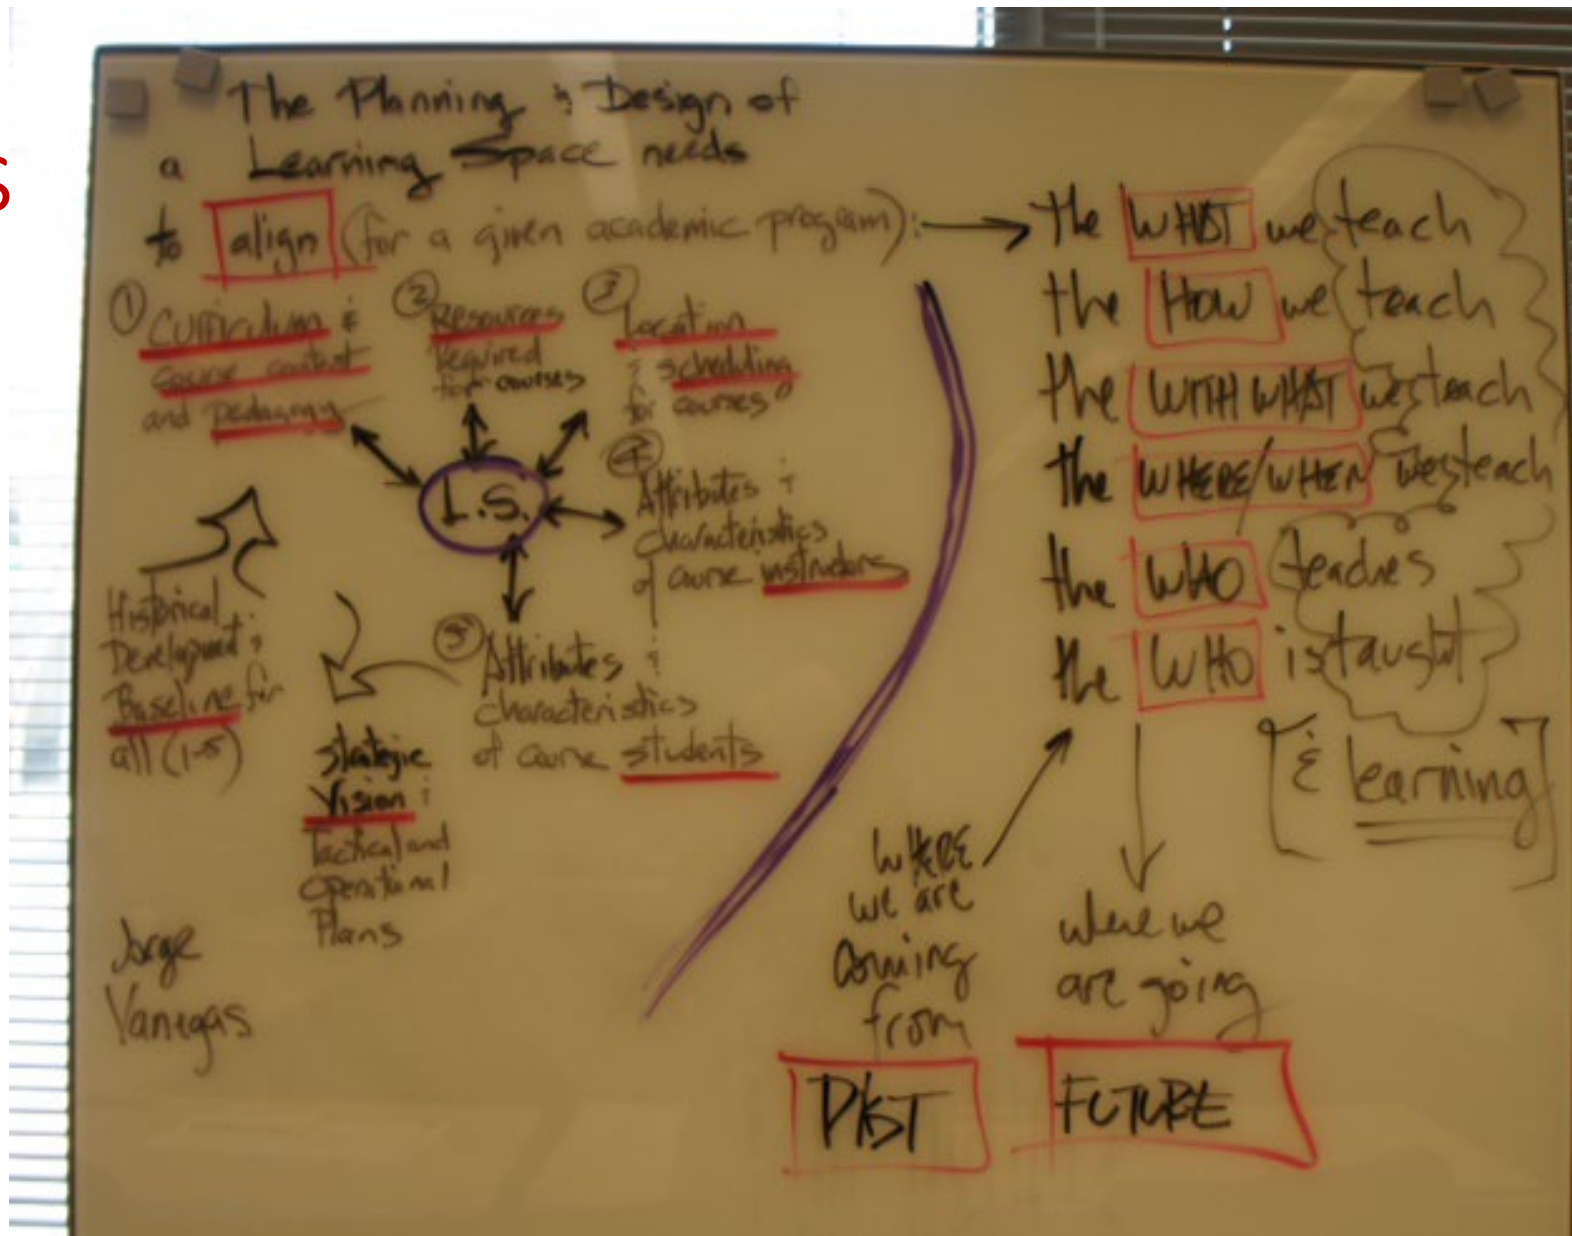 S
The Planning & Design of
a Learning Space needs
to align (for a given academic program):
① Curriculum &
course content
and pedagogy
② Resources
required
for courses
③ Location
& scheduling
for courses
L.S.
④
Attributes &
characteristics
of course instructors
⑤ Attributes &
characteristics
of course students
Historical
Development &
Baseline for
all (1-5)
Strategic
Vision &
Tactical and
Operational
Plans
Jorge
Vanegas
the WHAT we teach
the HOW we teach
the WITH WHAT we teach
the WHERE/WHEN we teach
the WHO teaches
the WHO is taught
[& learning]
WHERE
we are
coming
from
PAST
where we
are going
FUTURE